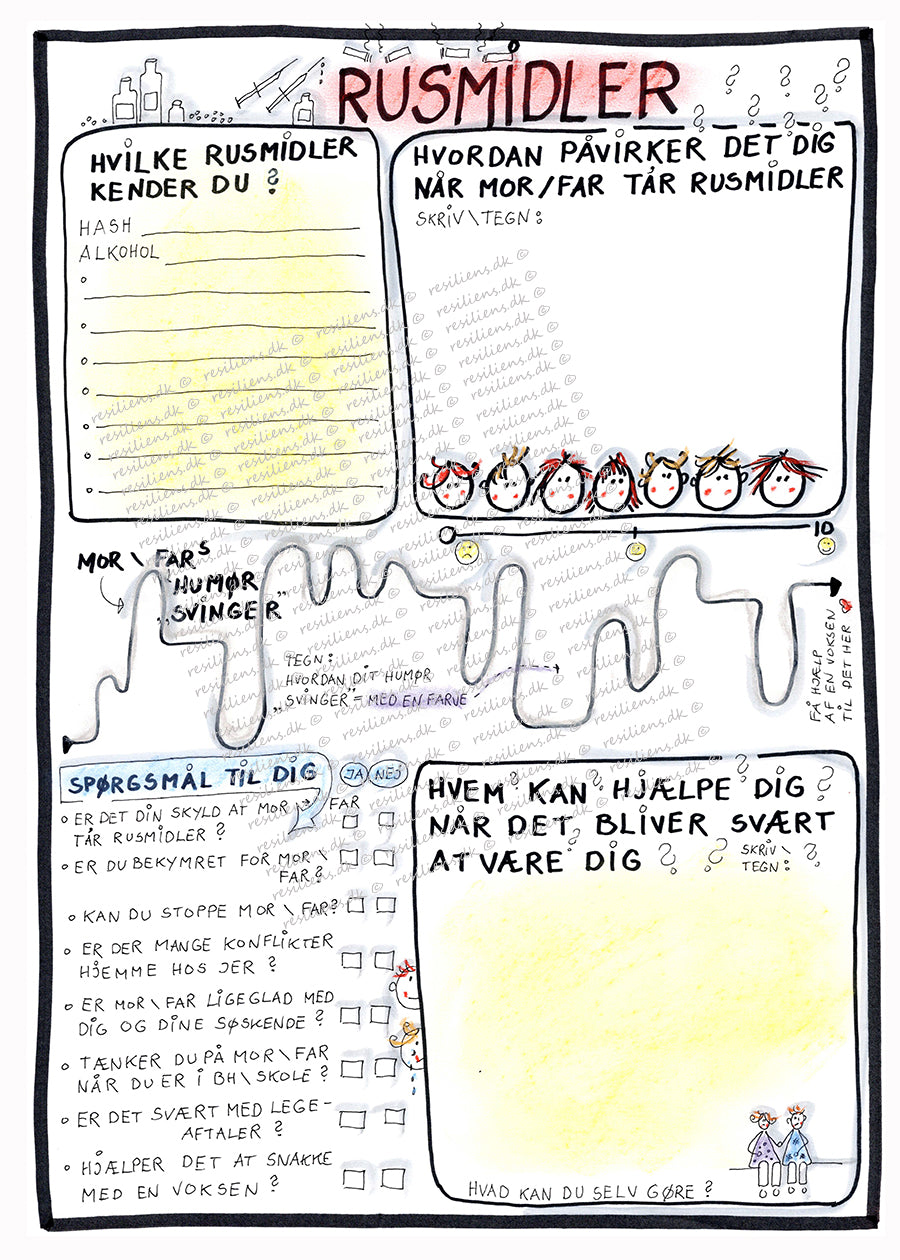 RUSMIDLER
HVILKE RUSMIDLER
KENDER DU ?
HASH
ALKOHOL
HVORDAN PÅVIRKER DET DIG
NÅR MOR/FAR TAR RUSMIDLER
SKRIV\TEGN:
0
10
MOR \ FARS
"HUMØR
„SVINGER"
TEGN:
HVORDAN DIT HUMØR
„SVINGER" = MED EN FARVE
FÅ HJÆLP
AF EN VOKSEN
TIL DET HER
SPØRGSMÅL TIL DIG
JA
NEJ
ER DET DIN SKYLD AT MOR \ FAR
TÅR RUSMIDLER ?
ER DU BEKYMRET FOR MOR \
FAR ?
KAN DU STOPPE MOR \ FAR?
ER DER MANGE KONFLIKTER
HJEMME HOS JER ?
ER MOR\FAR LIGEGLAD MED
DIG OG DINE SØSKENDE ?
TÆNKER DU PÅ MOR\FAR
NÅR DU ER I BH\SKOLE ?
ER DET SVÆRT MED LEGE-
AFTALER ?
HJÆLPER DET AT SNAKKE
MED EN VOKSEN ?
HVEM KAN HJÆLPE DIG ?
NÅR DET BLIVER SVÆRT
AT VÆRE DIG ?
SKRIV\
TEGN:
HVAD KAN DU SELV GØRE ?
resiliens.dk ©